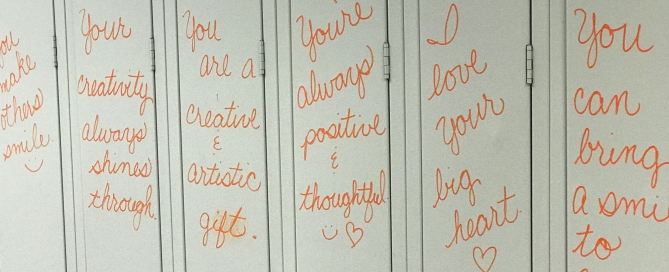 you
make
others
smile.
Your
creativity
always
shines
through.
You
are a
creative
&
artistic
gift.
You're
always
positive
&
thoughtful
I
love
your
big
heart.
You
can
bring
a smi
to